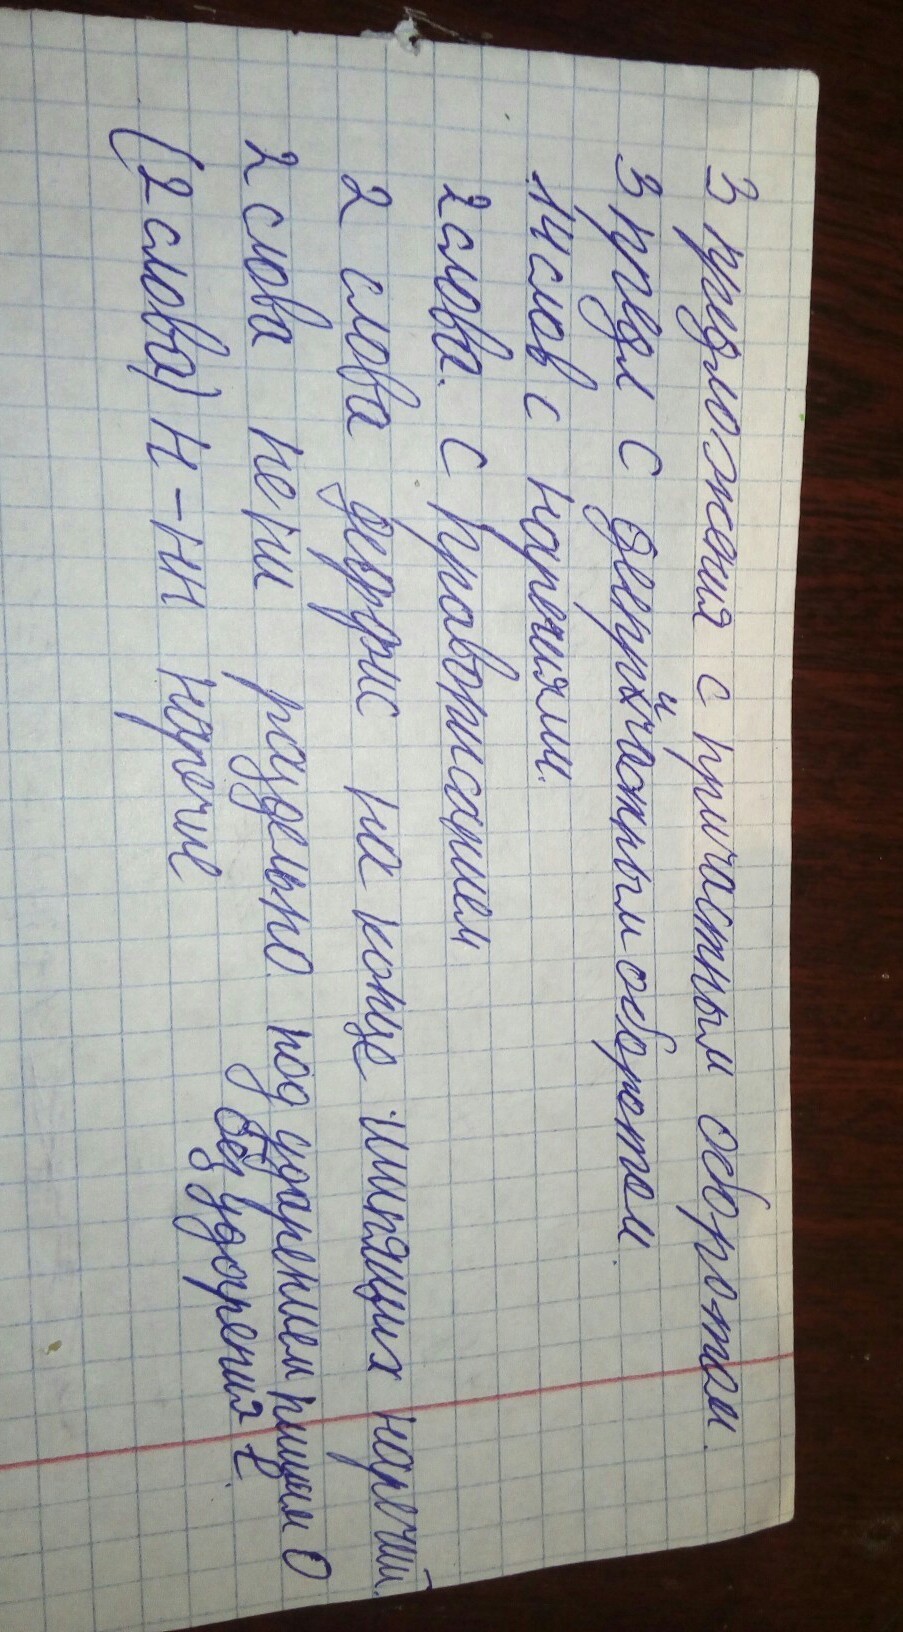 3 предложения с причастным оборотом.
3 предл с деепричастным оборотом.
14 слов с наречиями.
2 слова. с правописанием
2 слова дефрис на конце шипящих наречий.
2 слова не ни раздельно под ударением пишем о
без ударения е.
(2 слова) н-нн наречие